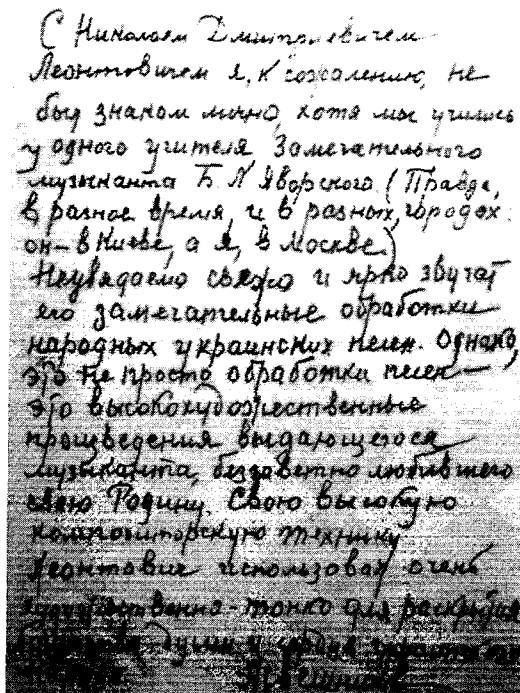 С Николаем Дмитриевичем
Леонтовичем я, к сожалению, не
был знаком лично, хотя мы учились
у одного учителя замечательного
музыканта Б Л Яворского. (Правда,
в разное время, и в разных, городах:
он – в Киеве, а я, в Москве.)
Неувядаемо свежо и ярко звучат
его замечательные обработки
народных украинских песен. Однако,
это не просто обработки песен —
это высокохудожественные
произведения выдающегося
музыканта, беззаветно любившего
свою Родину. Свою высокую
композиторскую технику
Леонтович использовал очень
художественно-тонко для раскрытия
души и сердца